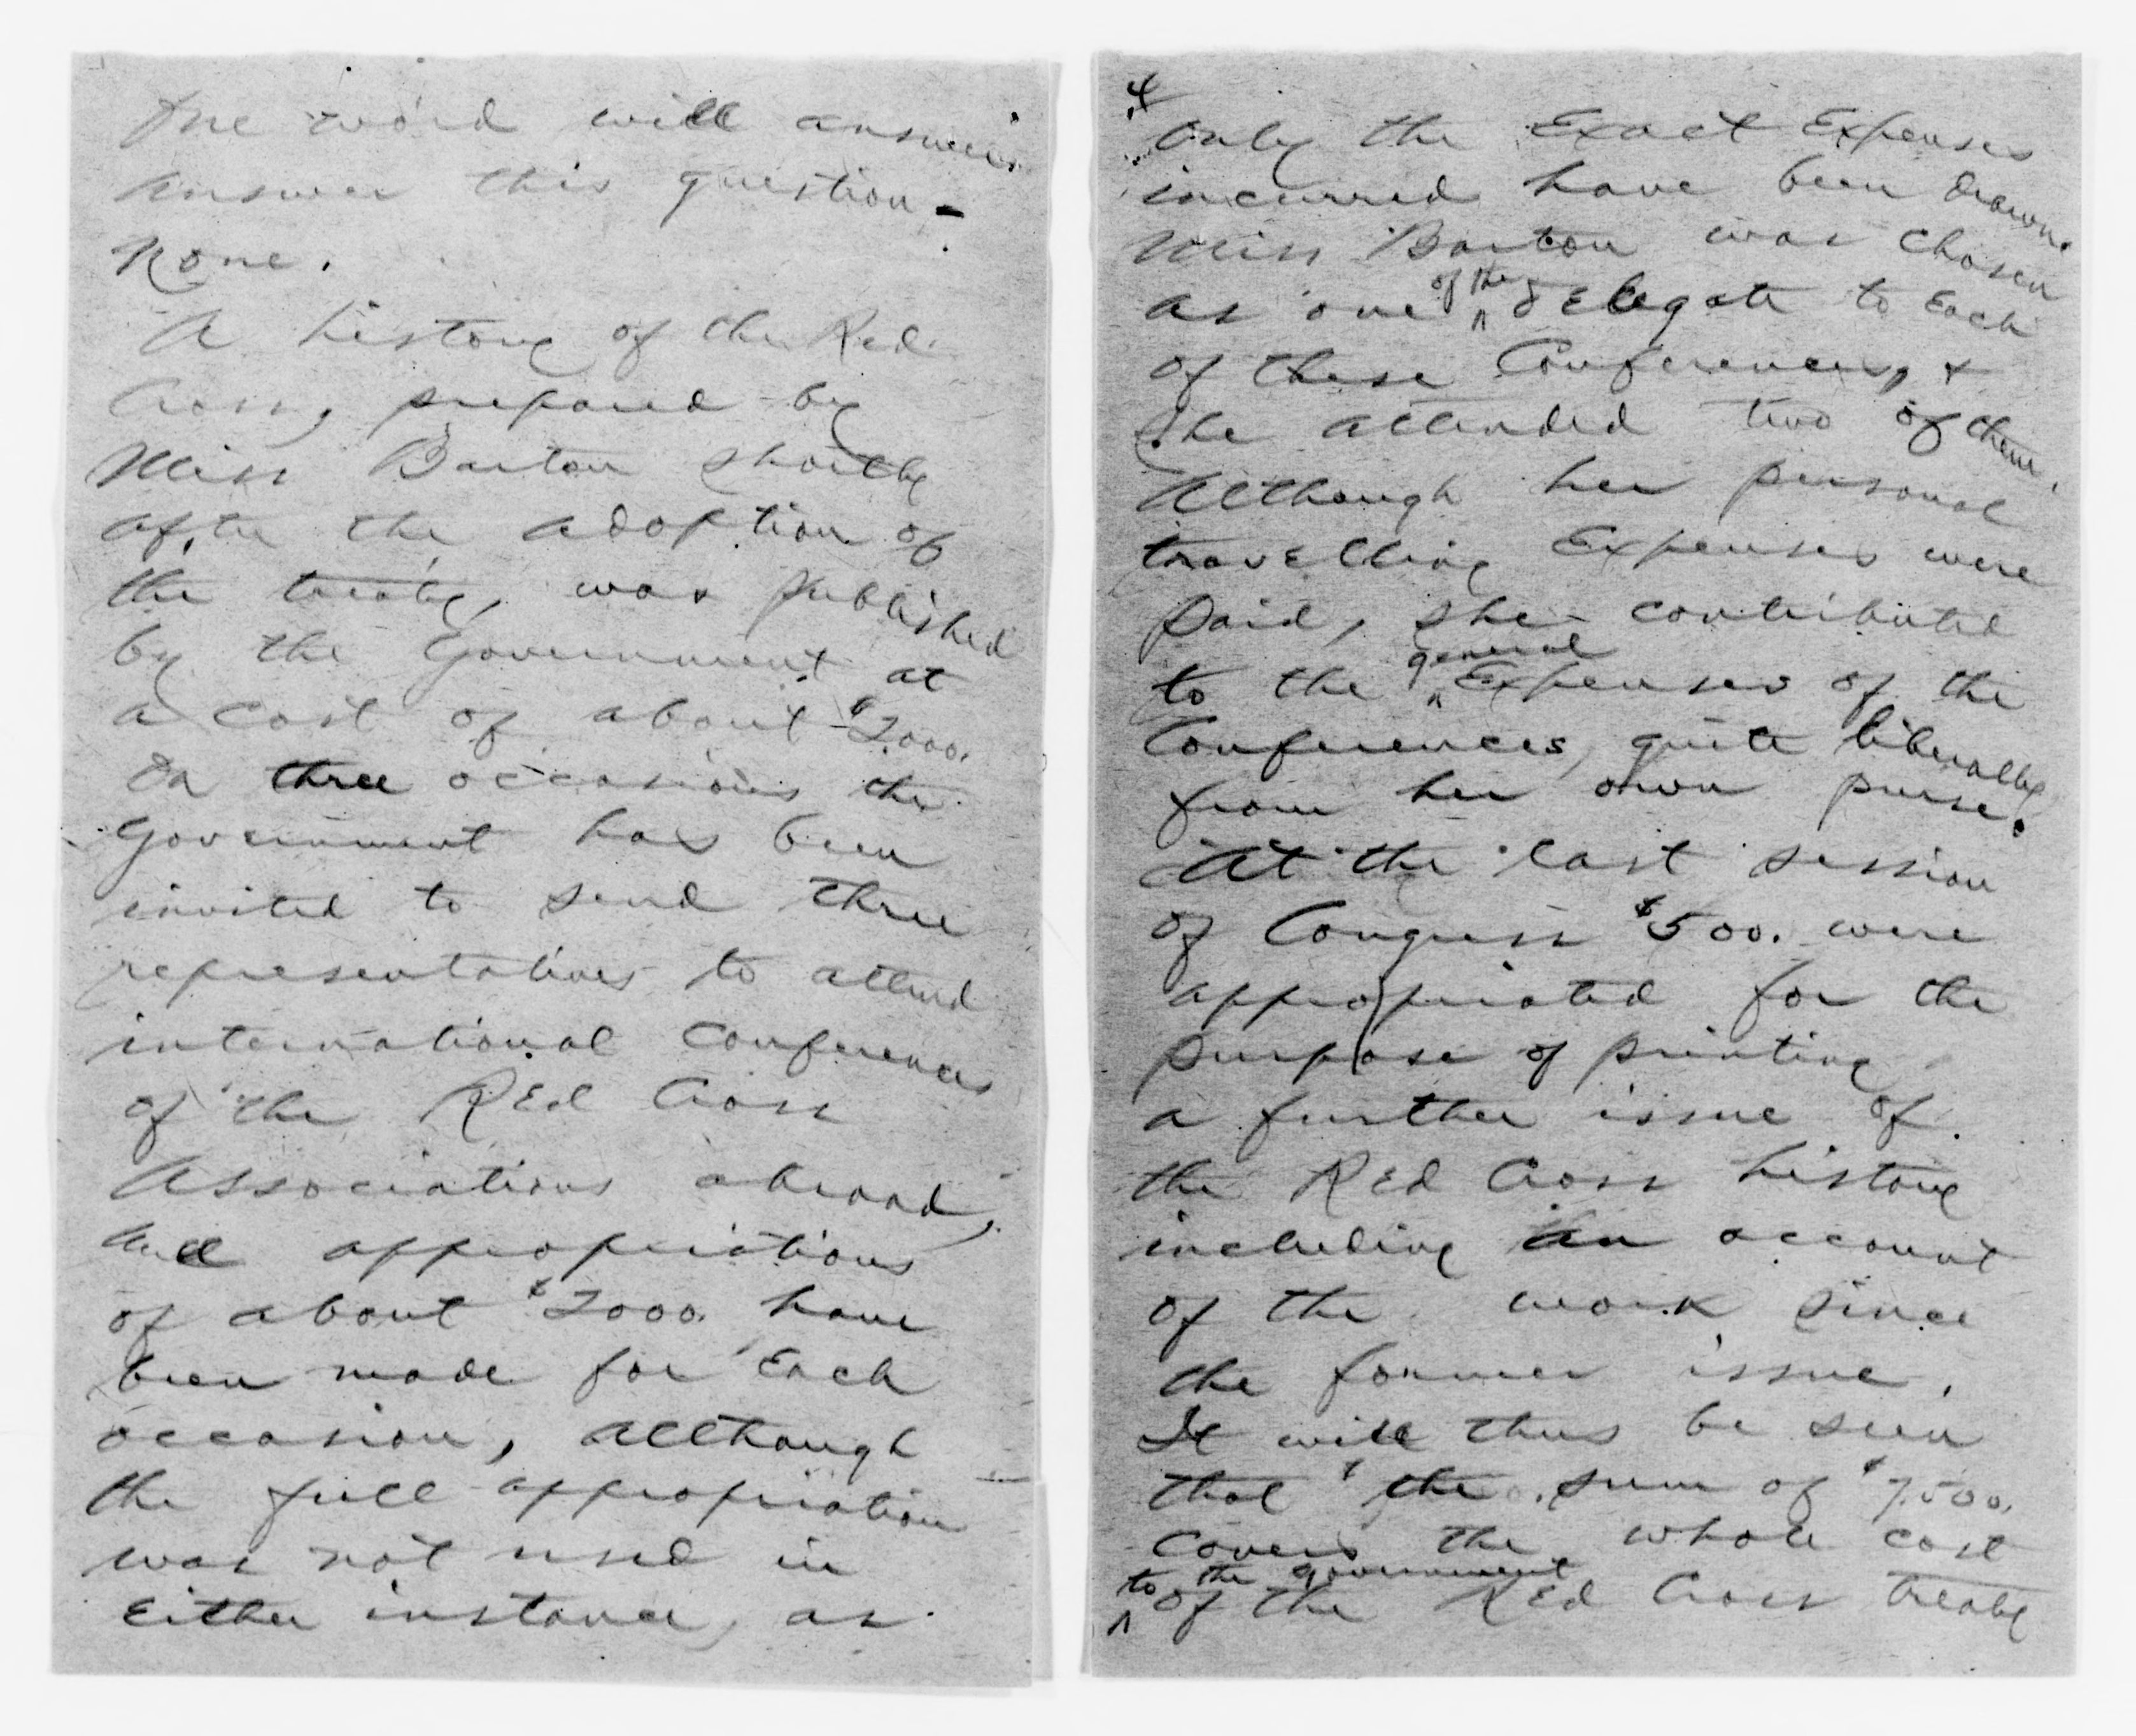 One word will answer
answer this question -
None.
A history of the Red
Cross, prepared by
Miss Barton shortly
after the adoption of
the treaty, was published
by the Government at
a cost of about $2000.
On three occasions the
Government has been
invited to send three
representatives to attend
international Conferences
of the Red Cross
Associations abroad,
and appropriations
of about $2000. have
been made for Each
occasion, although
the full appropriation
was not used in
Either instance, as
4
Only the Exact Expenses
incurred have been drawn.
Miss Barton was chosen
as one of the delegate to Each
of these Conferences, &
she attended two of them.
Although her personal
travelling Expenses were
paid, she contributed
to the general Expenses of the
Conferences, quite liberally
from her own purse.
At the last session
of Congress $500. were
appropriated for the
purpose of printing
a further issue of
the Red Cross history
including an account
of the work since
the former issue.
It will thus be seen
that the sum of $7500.
covers the whole cost
to the government
of the Red Cross treaty